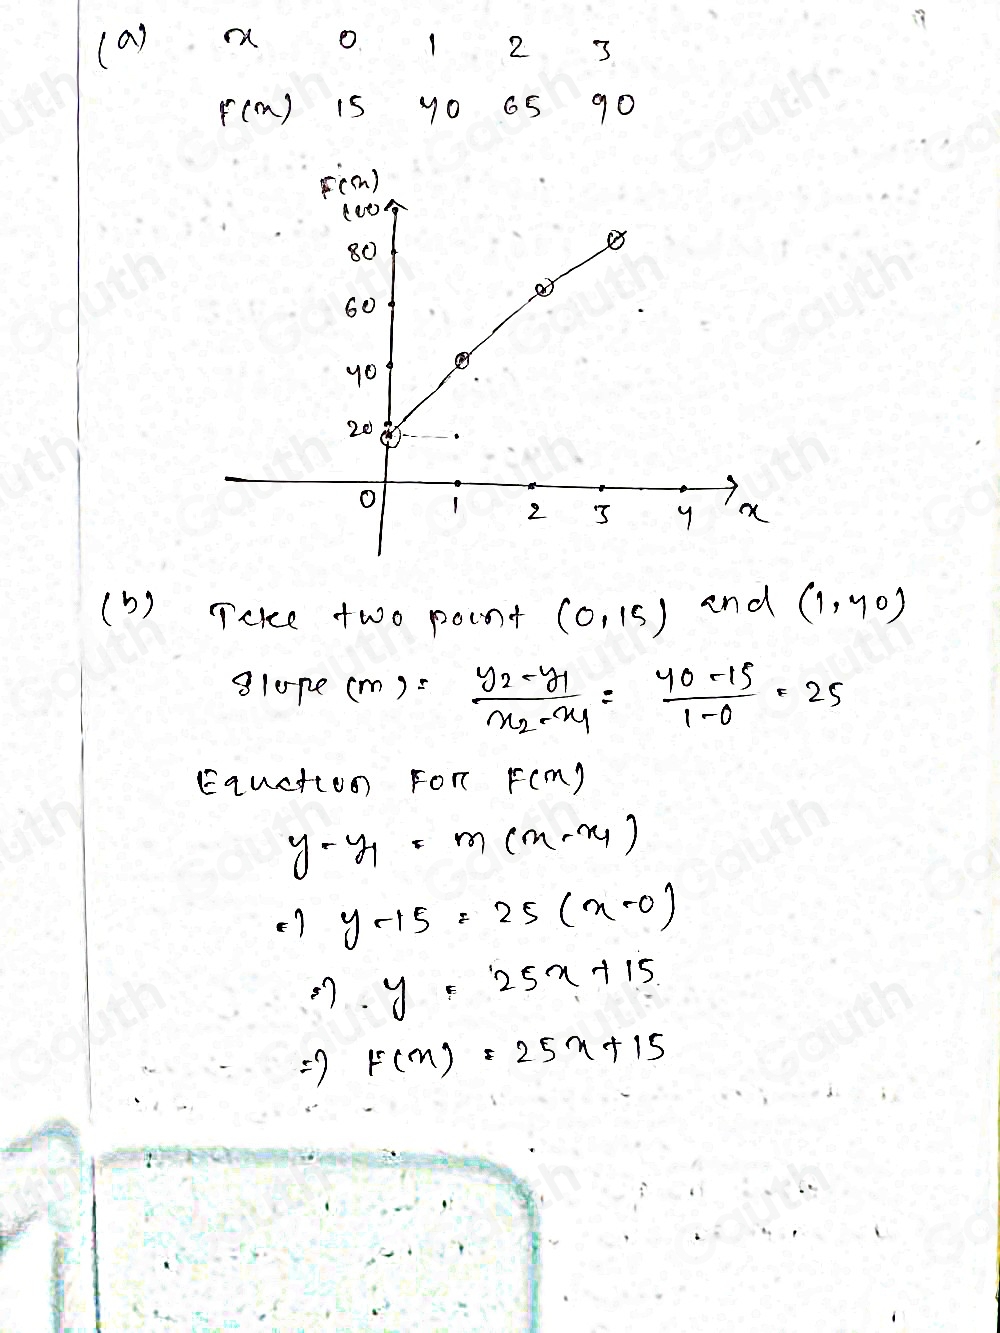 (a) x 0 1 2 3
F(x) 15 40 65 90
F(x)
100
80
60
40
20
0 1 2 3 4 x
(b) Take two point (0,15) and (1,40)
Slope (m) = y2-y1/x2-x1 = 40-15/1-0 = 25
Equation For F(x)
y-y1 = m(x-x1)
=) y-15 = 25(x-0)
=) y = 25x+15
=) F(x) = 25x+15
Gauth